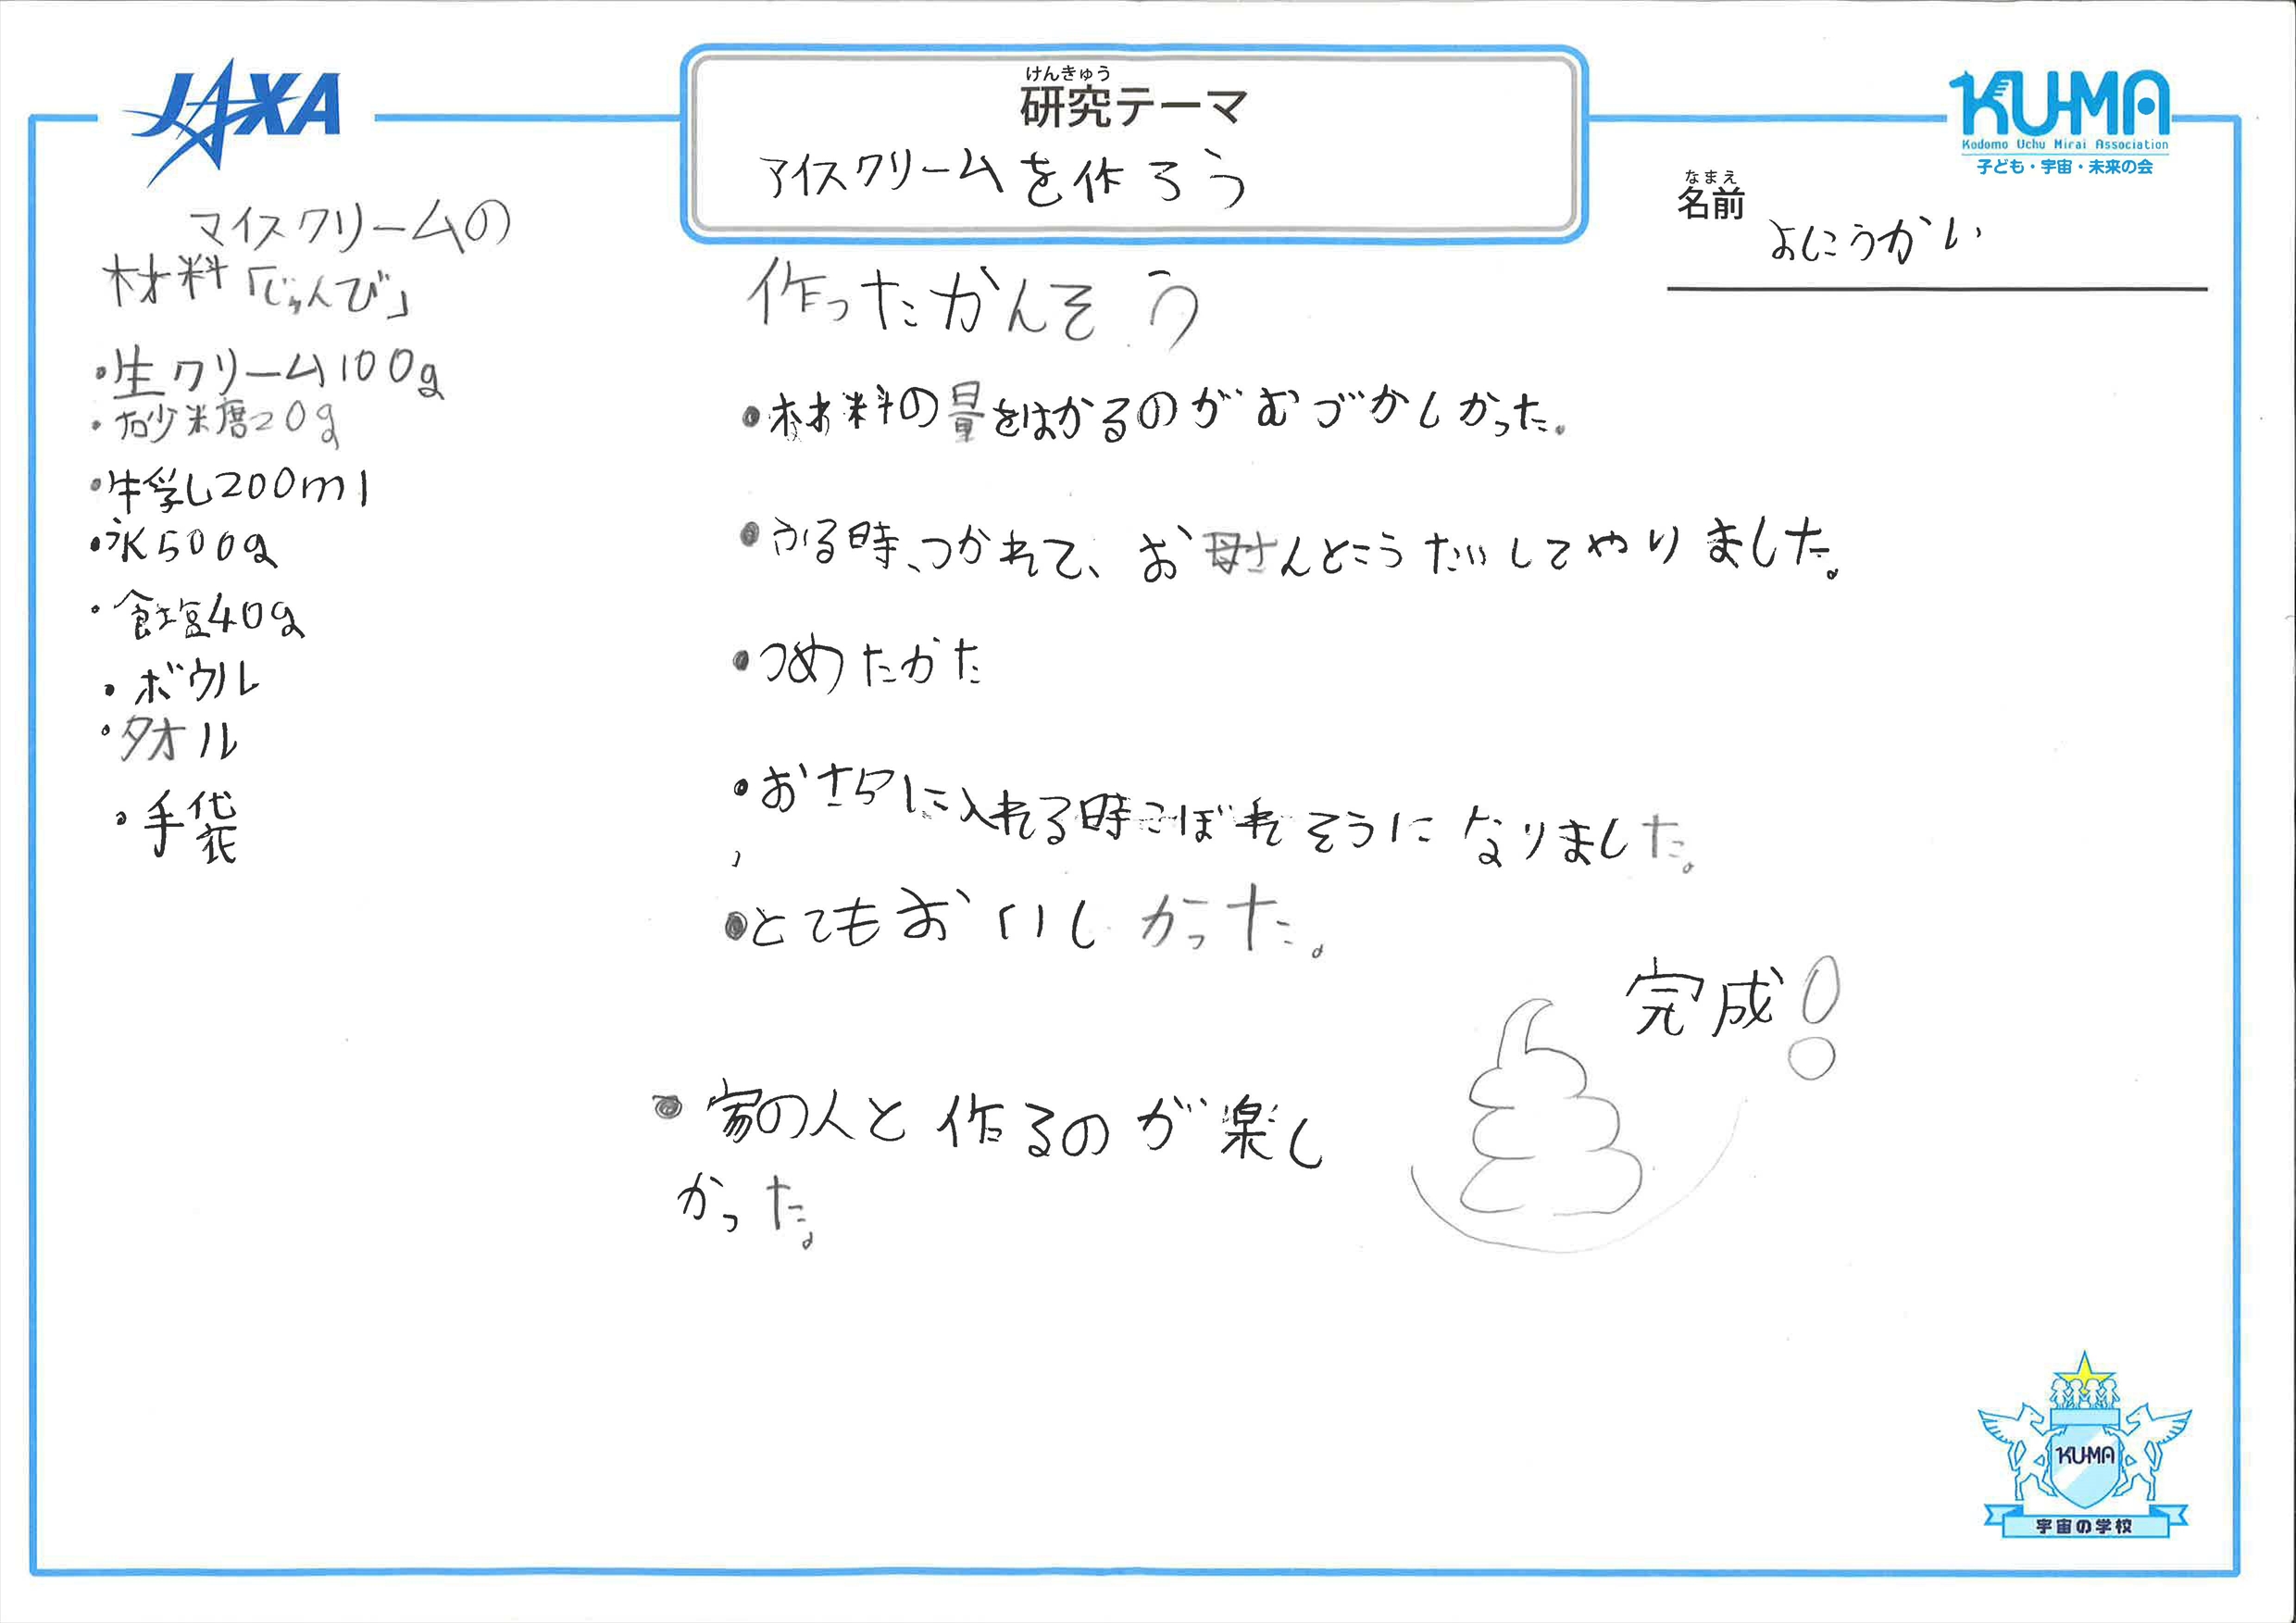 JAXA
けんきゅう
研究テーマ
アイスクリームを作ろう
KU-MA
Kodomo Uchu Mirai Association
子ども・宇宙・未来の会
なまえ
名前
よしこうかい
マイスクリームの
材料「じゅんび」
・生クリーム100g
・砂糖20g
・牛乳し200ml
・氷500g
・食塩40g
・ボウル
・タオル
・手袋
作ったかんそう
・材料の量をはかるのがむづかしかった。
・ふる時、つかれて、お母さんとこうたいしてやりました。
・つめたかた
・おさらに入れる時こぼれそうになりました。
・とてもおいしかった。
完成!
・家の人と作るのが楽し
かった。
KU-MA
宇宙の学校